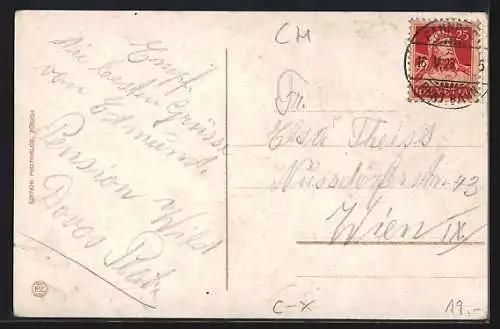 CM
25
Empf.
die besten Grüsse
von Edmund.
Pension Wild
Davos Platz
Fr.
Elsa Theiss
Nussdorferstr. 43
Wien IX
EDITION PHOTOGLOB, ZÜRICH
PZ
C-X
19.-